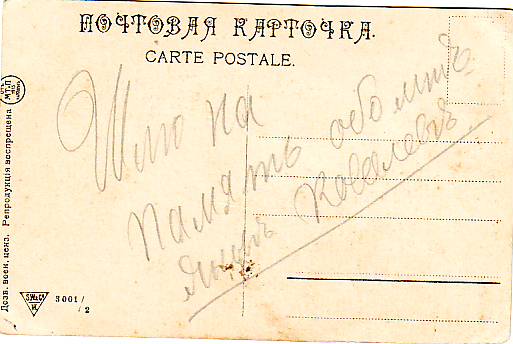 ПОЧТОВАЯ КАРТОЧКА.
CARTE POSTALE.
Шлю на
память обо мнѣ
Янъ Ковалевъ
Дозв. воен. ценз. Репродукція воспрещена
S.W&C° M.
3001/2